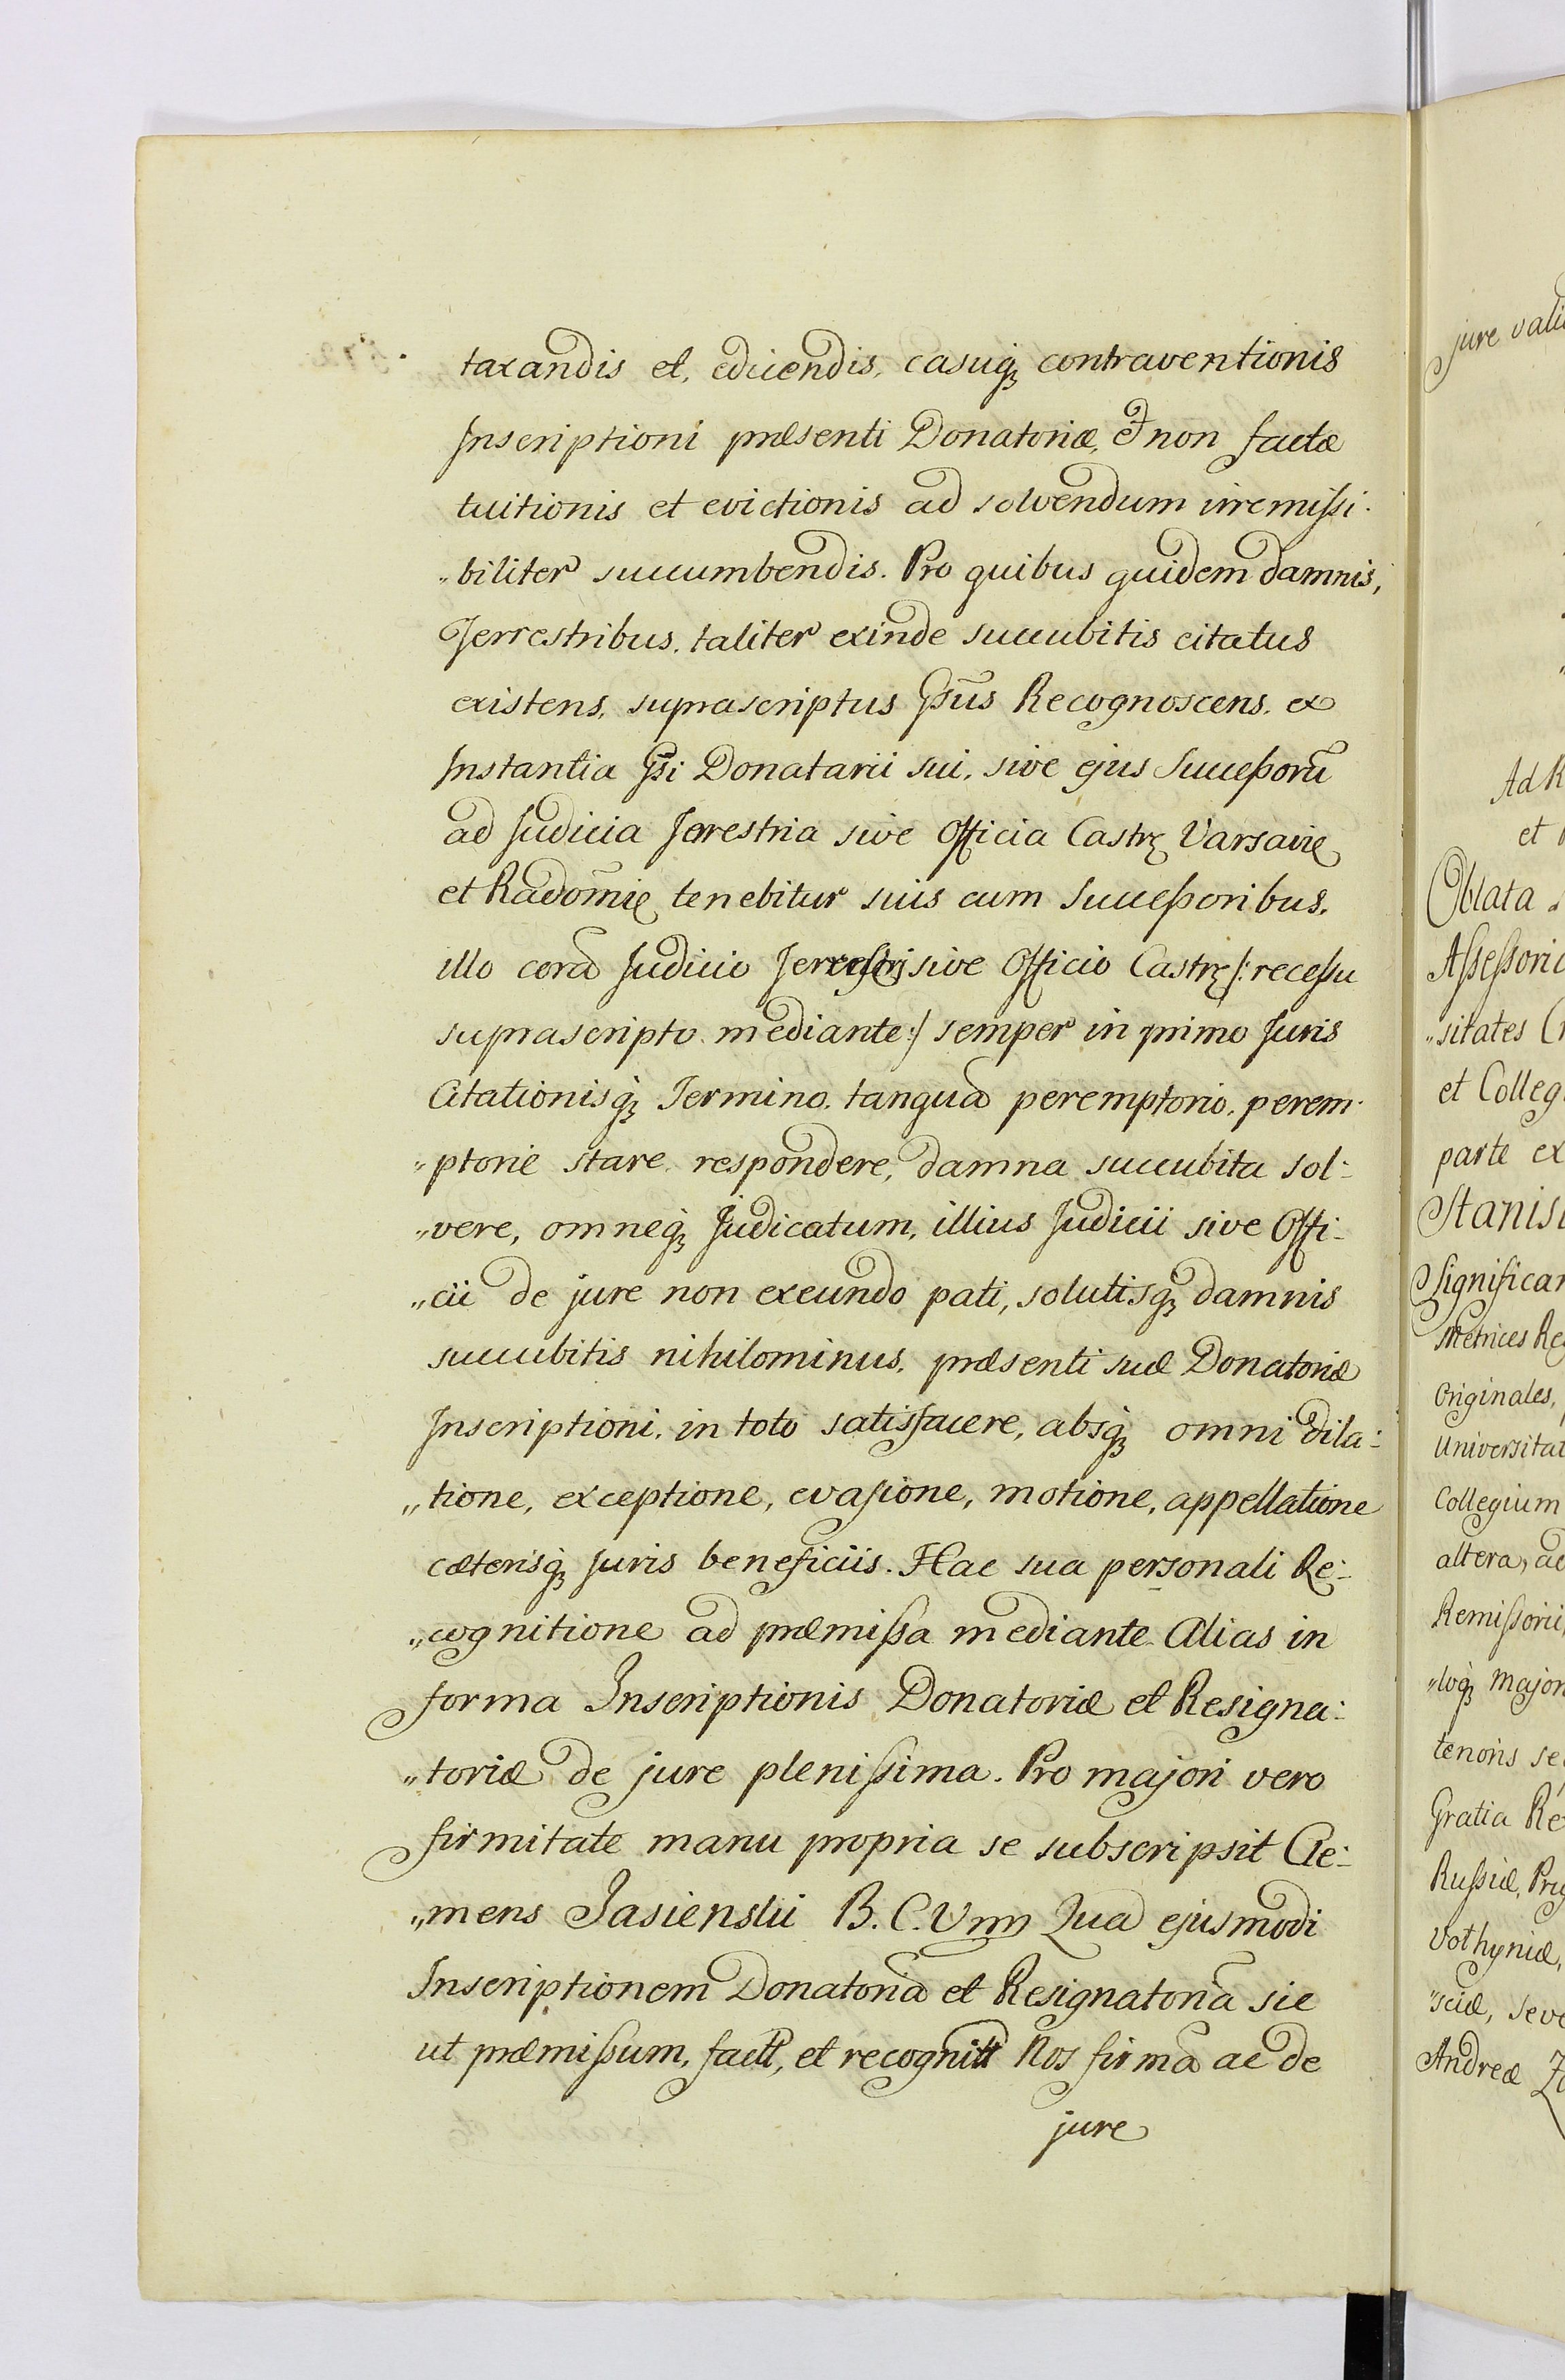 taxandis et, edicendis, casuq₃ contraventionis
Inscriptioni præsenti Donatoriæ, et non factæ
tuitionis et evictionis ad solvendum irremissi-
„biliter succumbendis. Pro quibus quidem damnis,
Terrestribus, taliter exinde succubitis citatus
existens, suprascriptus Gsus Recognoscens, ex
Instantia Gsi Donatarii sui, sive ejus Successorū
ad Judicia Terrestria sive Officia Castrę Varsavię
et Radomię tenebitur suis cum Successoribus,
illo corā Judicio Terrestri sive Officio Castrę /: recessu
suprascripto mediante :/ semper in primo Juris
Citationisq₃ Termino, tanquā peremptorio, perem-
„ptorie stare, respondere, damna succubita sol-
„vere, omneq₃ Judicatum, illius Judicii sive Offi-
„cii de jure non exeundo pati, solutisq₃ damnis
succubitis nihilominus, præsenti suæ Donatoriæ
Inscriptioni, in toto satisfacere, absq₃ omni dila-
„tione, exceptione, evasione, motione, appellatione
cæterisq₃ Juris beneficiis. Hac sua personali Re-
„cognitione ad præmissa mediante. Alias in
forma Inscriptionis Donatoriæ et Resigna-
„toriæ de jure plenissima. Pro majori vero
firmitate manu propria se subscripsit Cle-
„mens Jasienski B. C. Vmm Quā ejusmodi
Inscriptionem Donatoriā et Resignatoriā sic
ut præmissum, factt, et recognitt Nos firmā ac de
jure
jure vali
Ad R
et
Oblata
Assessoric
„sitates
et Colleg
parte ex
Stanisl
Significan
Metrices Re
Originales,
Universitat
Collegium
altera, ac
Remissorii
„loq₃ Major
tenoris se
Gratia Re
Russiæ, Pru
Volhyniæ,
„sciæ, seve
Andreæ Za